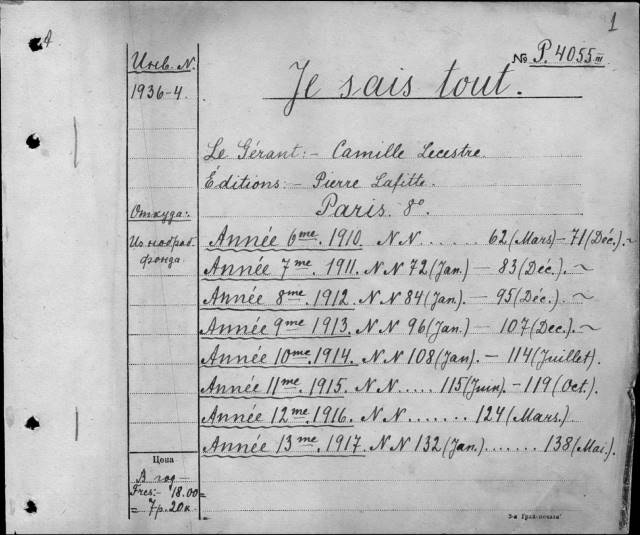 1
Инв. N.
1936-4.
№ P. 4055 III
Je sais tout.
Le Gérant:- Camille Lecestre.
Éditions:- Pierre Lafitte.
Paris. 8°
Откуда:
Из необраб.
фонда.
Année 6me. 1910. N N ....... 62 (Mars) – 71 (Déc.). ~
Année 7me. 1911. N N 72 (Jan.) – 83 (Déc.). ~
Année 8me. 1912. N N 84 (Jan.). – 95 (Déc.). ~
Année 9me. 1913. N N 96 (Jan.) – 107 (Dec.). ~
Année 10me. 1914. N N 108 (Jan.) – 114 (Juillet).
Année 11me. 1915. N N ..... 115 (Juin). – 119 (Oct.).
Année 12me. 1916. N N ....... 124 (Mars.)
Année 13me. 1917. N N 132 (Jan.) ...... 138 (Mai.).
Цена
В год –
Frcs:- 18.00 =
= 7р. 20к